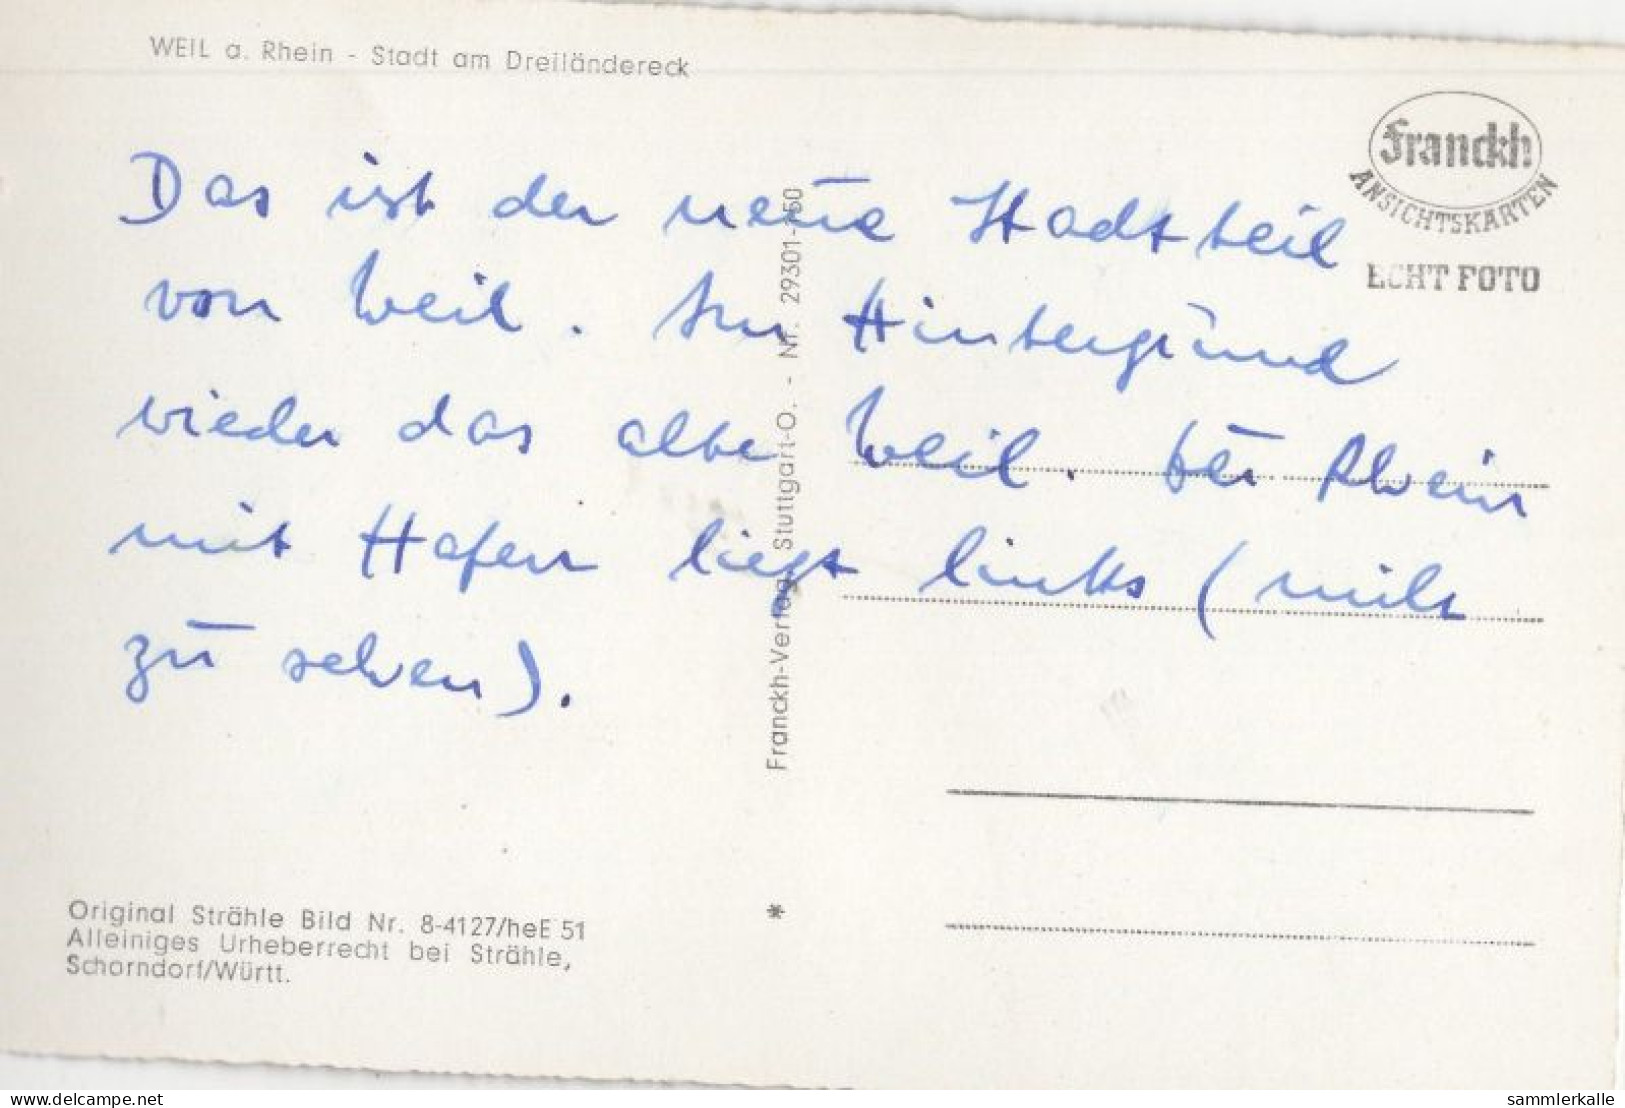 WEIL a. Rhein - Stadt am Dreiländereck
Franckh
ANSICHTSKARTEN
ECHT FOTO
Das ist der neue Stadtteil
von Weil. Im Hintergrund
wieder das alte Weil. Der Rhein
mit Hafen liegt links (nicht
zu sehen).
Franckh-Verlag, Stuttgart-O. - Nr. 29301-750
*
Original Strähle Bild Nr. 8-4127/heE 51
Alleiniges Urheberrecht bei Strähle,
Schorndorf/Württ.
www.delcampe.net
sammlerkalle